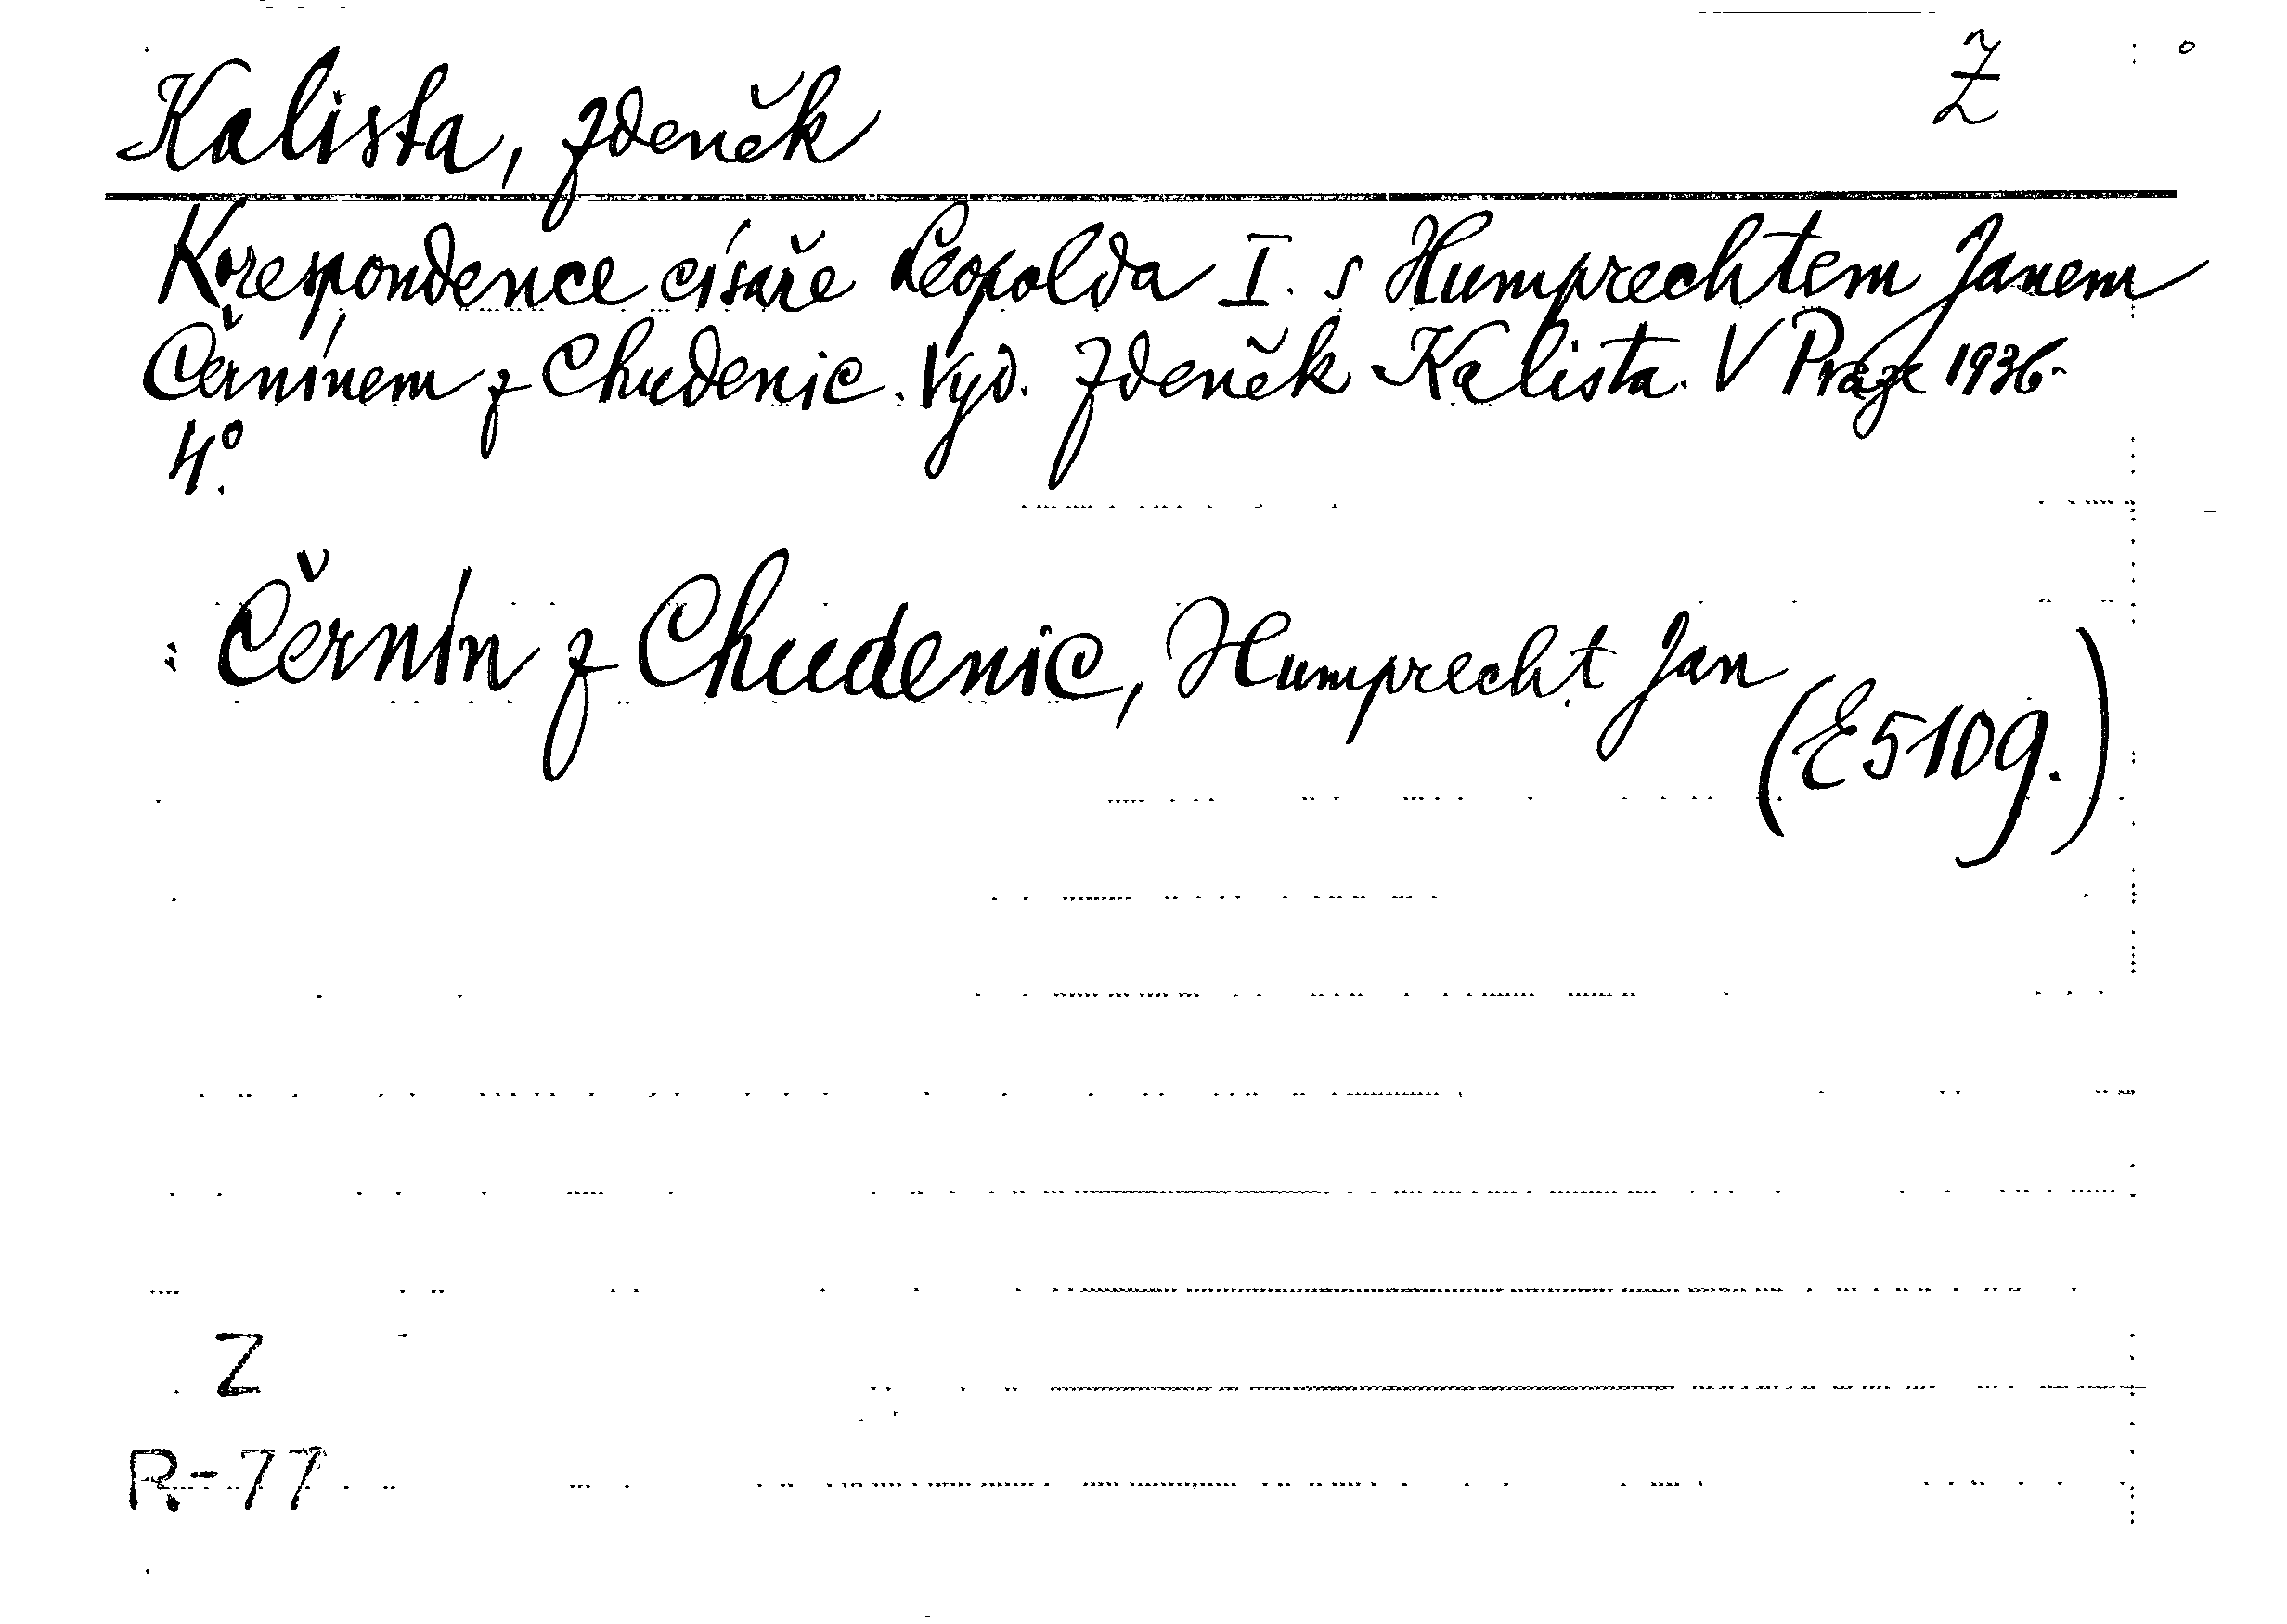 Z
Kalista, Zdeněk
Korespondence císaře Leopolda I. s Humprechtem Janem
Černínem z Chudenic. Vyd. Zdeněk Kalista. V Praze 1936.
4°.
: Černín z Chudenic, Humprecht Jan
(E 5109.)
Z
R-77